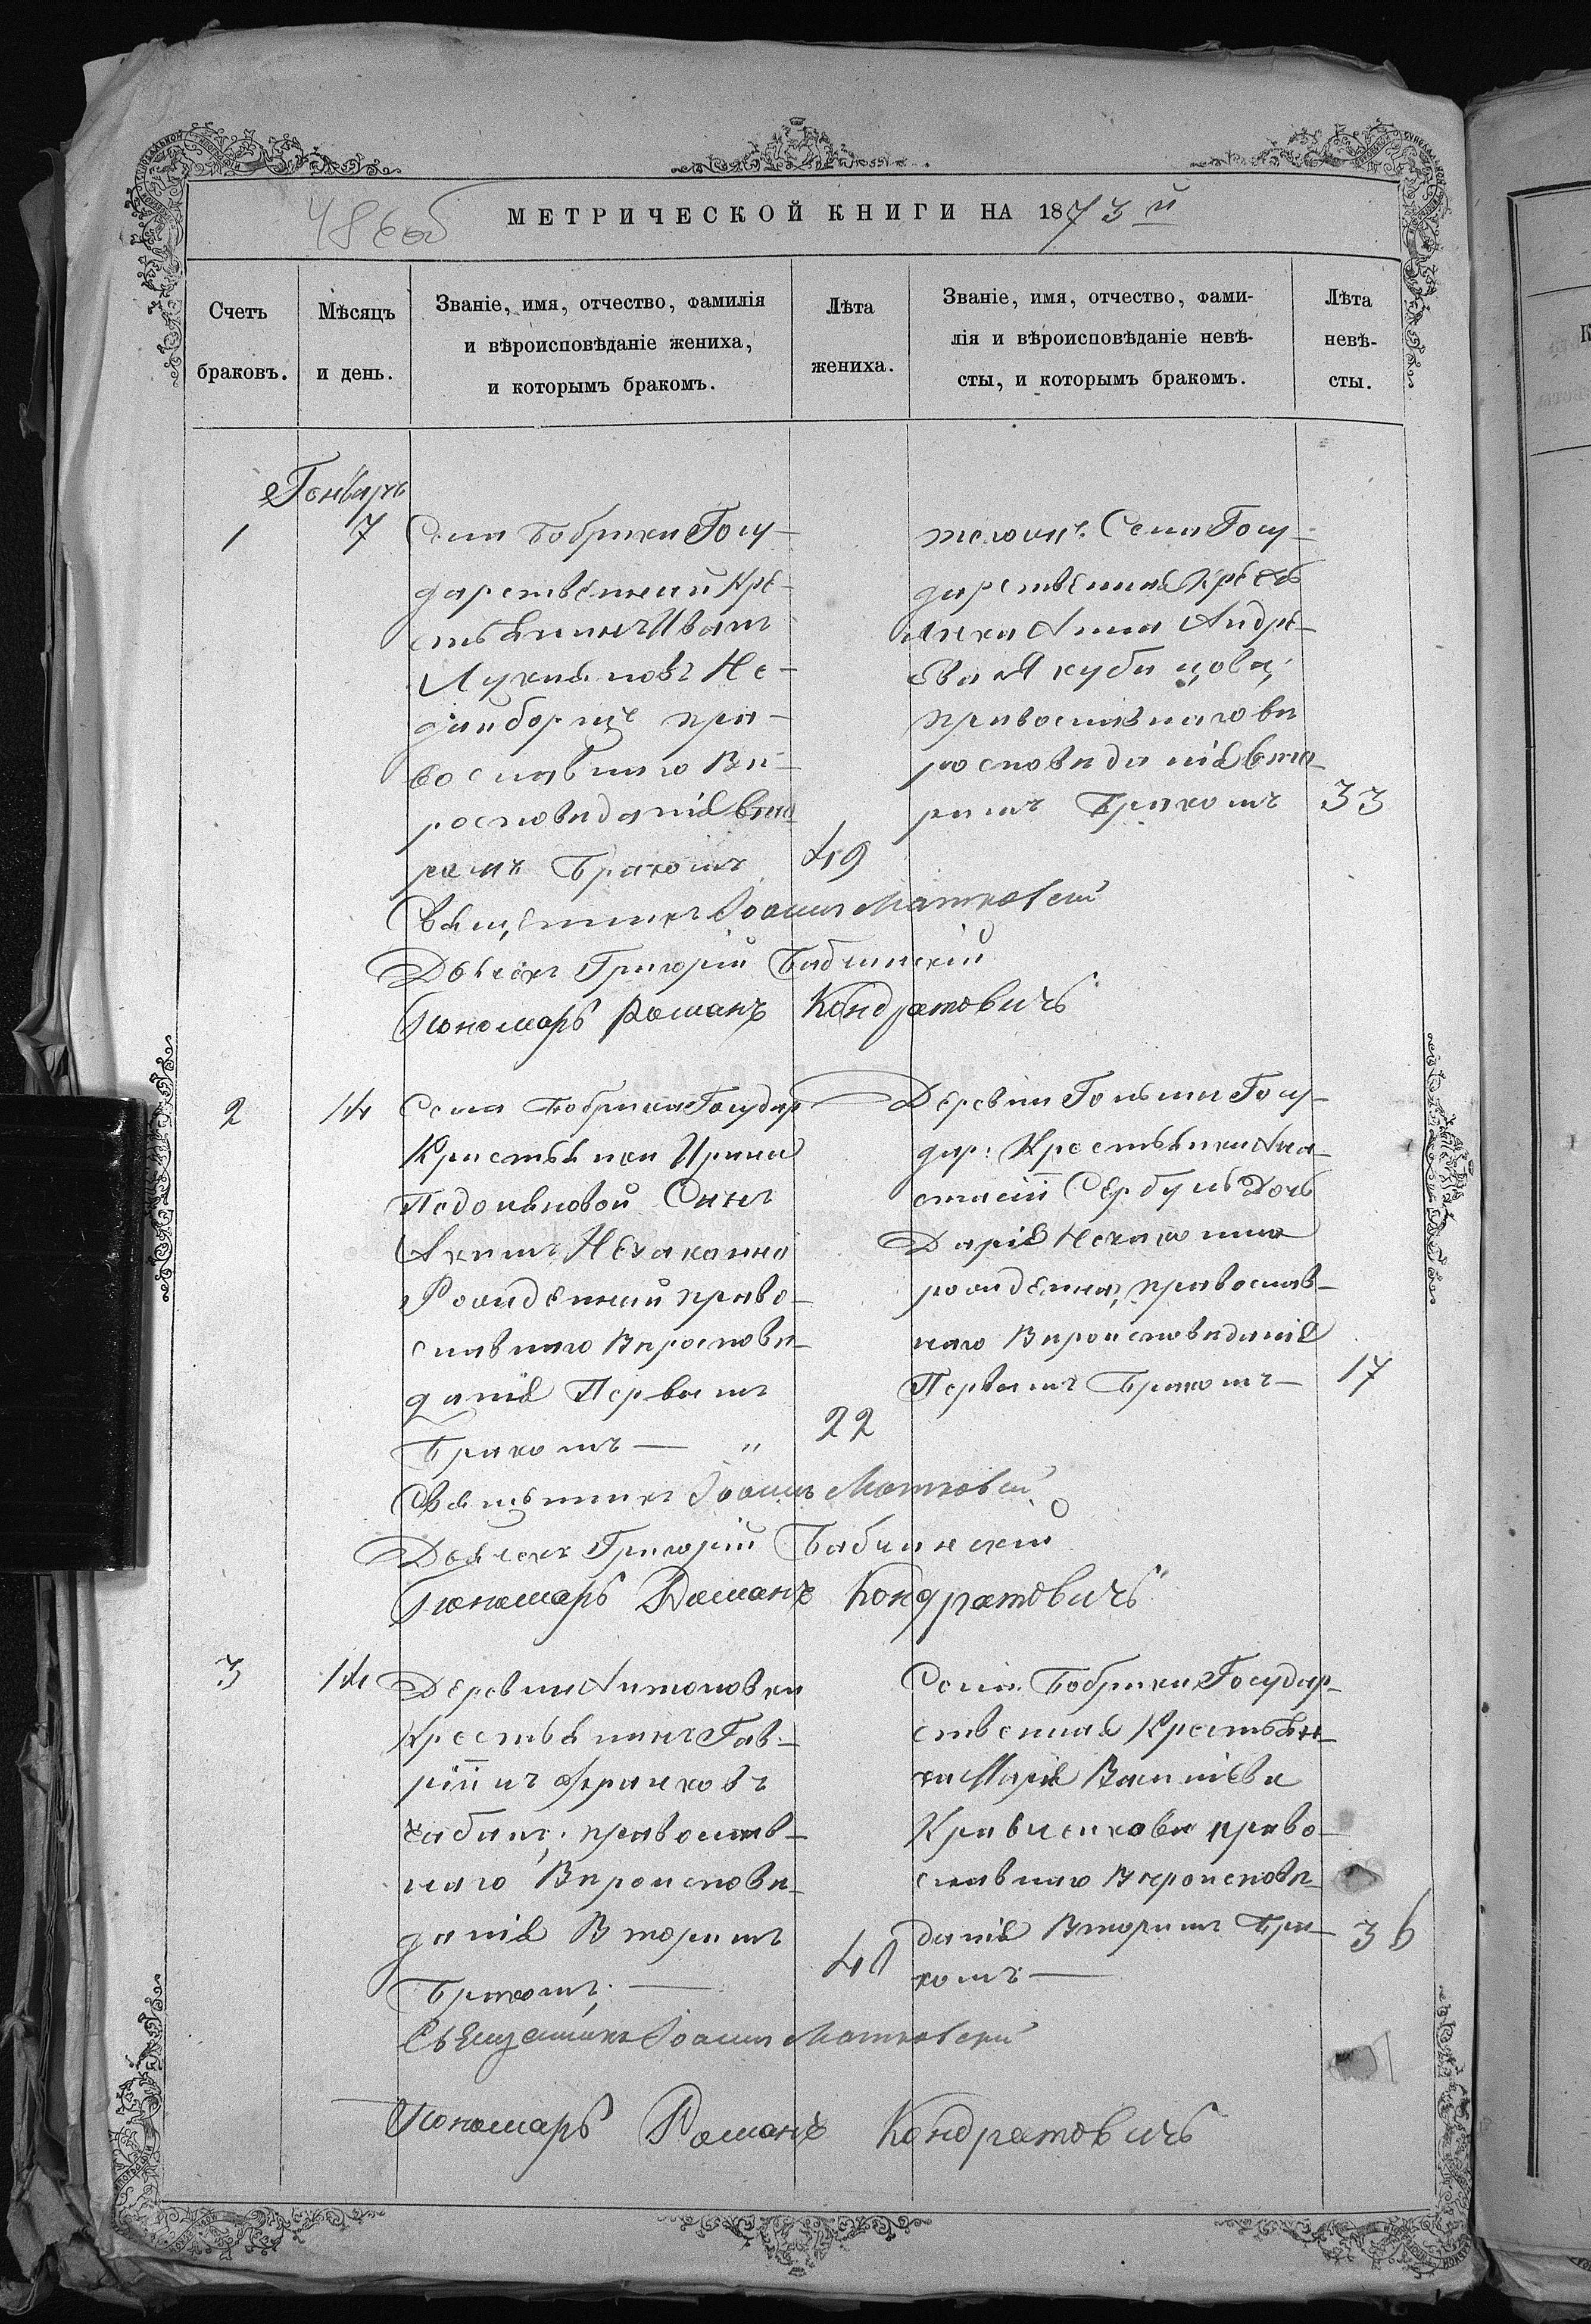 486об
МЕТРИЧЕСКОЙ КНИГИ НА 1873й
Счетъ браковъ.
Мѣсяцъ и день.
Званіе, имя, отчество, фамилія
и вѣроисповѣданіе жениха,
и которымъ бракомъ.
Лѣта жениха.
Званіе, имя, отчество, фами-
лія и вѣроисповѣданіе невѣ-
сты, и которымъ бракомъ.
Лѣта невѣ-
сты.
Генварь
1
7
Села Бобрика Госу-
дарственный Кре-
стьянинъ Иванъ
Лукіяновъ Не-
православнаго Ви-
росповиданія вто-
рымъ Бракомъ
49
Села Госу-
дарственная Кресть
янка Анна Андре-
ева Якубицова
православнаго ви
росповиданія вто-
рымъ Бракомъ
33
Священникъ Іоаннъ Матковскій
Дьячекъ Григорій Бабчинскій
Пономарь Романъ Кондратовичъ
2
14
Села Бобрика Государ
Кристьянки Ирины
Подоляновой Сынъ
Акимъ Незаконно
Рожденный право-
славнаго Вироспови-
данія Первымъ
Бракомъ — "
22
Деревни Гольмы Госу-
дар: Крестьянки Ана-
стасіи Сербулъ Дочь
Дарія Незаконно
рожденна, православ-
наго Вироисповиданія
Первымъ Бракомъ —
17
Священникъ Іоаннъ Матковскій
Дьячекъ Григорій Бабчинскій
Пономарь Романъ Кондратовичъ
3
14
Деревни Антоновки
Крестьянинъ Гав-
ріилъ
Чабанъ, православ-
наго Вироиспови-
данія Вторымъ
Бракомъ; —
40
Села Бобрика Государ-
ственная Крестьян-
ка Марія Василіева
Кравченкова право-
славнаго Вѣроисповѣ-
данія Вторымъ Бра-
комъ —
36
Священникъ Іоаннъ Матковскій
Пономарь Романъ Кондратовичъ